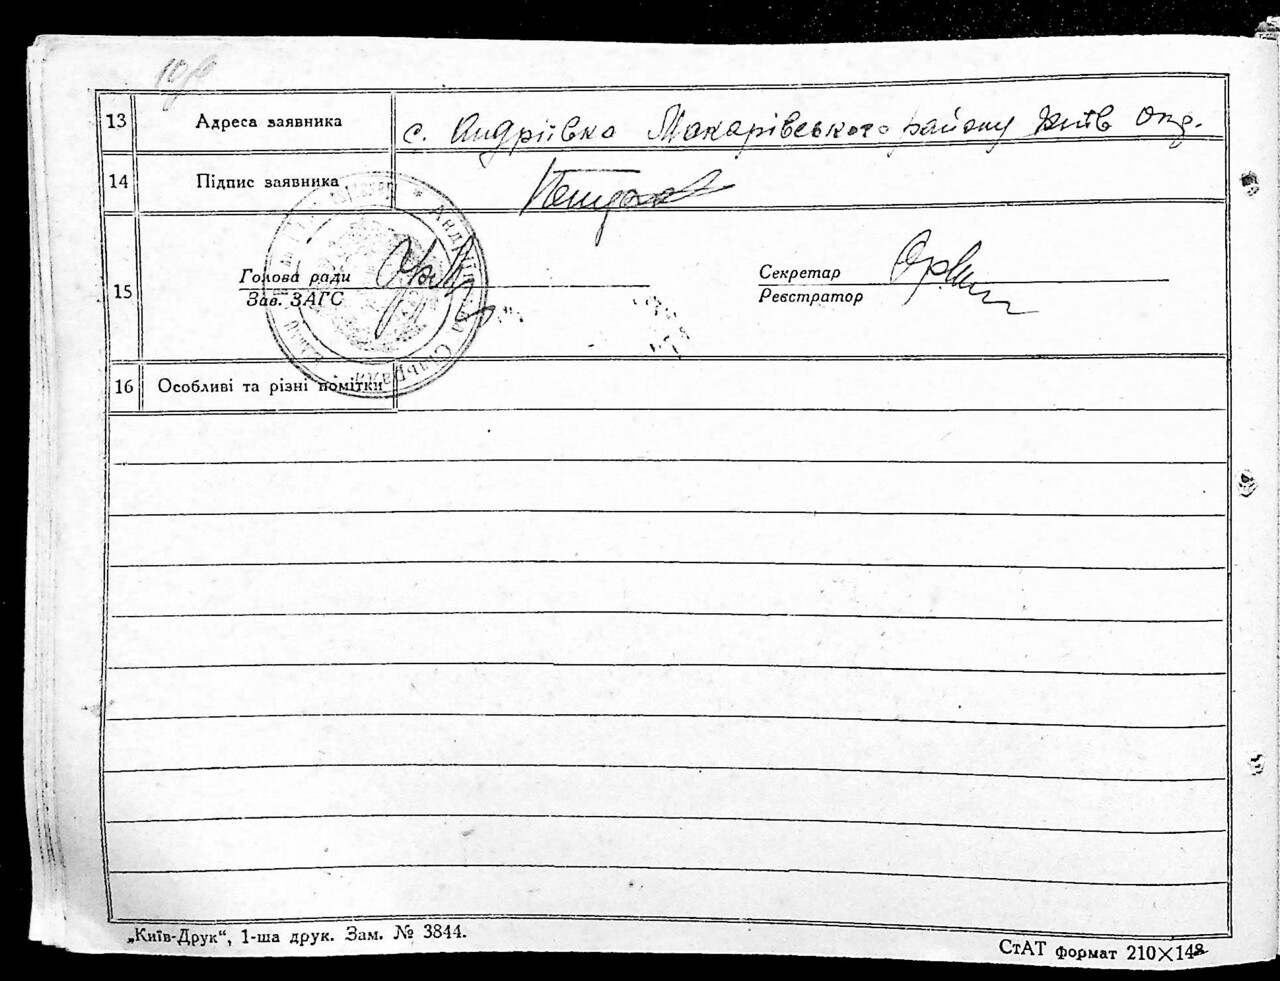 10
13 Адреса заявника с. Андріївка Макарівського району Київ окр.
14 Підпис заявника
15 Голова ради
Зав. ЗАГС
Секретар
Реєстратор
16 Особливі та різні помітки
„Київ-Друк“, 1-ша друк. Зам. № 3844.
СтАТ формат 210×148